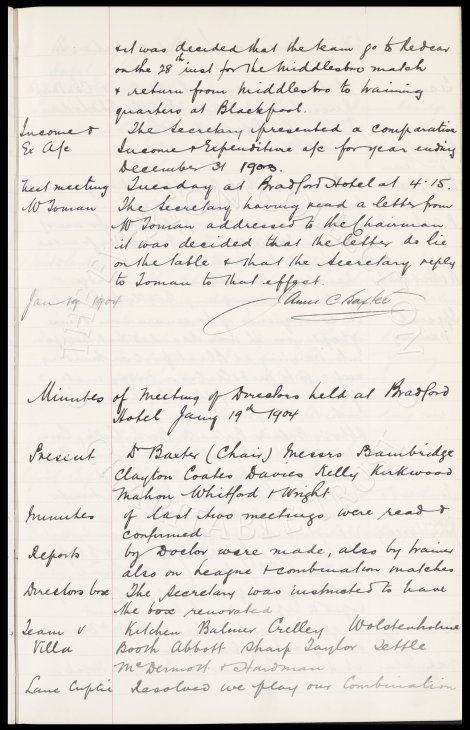 & it was decided that the team go to Redcar
on the 28th inst for the Middlesbro match
& return from Middlesbro to training
quarters at Blackpool.
Income & The Secretary presented a comparative
Ex A/c Income & Expenditure a/c for year ending
December 31 1903.
Next meeting Tuesday at Bradford Hotel at 4.15.
W Toman The Secretary having read a letter from
W Toman addressed to the Chairman
it was decided that the letter do lie
on the table & that the Secretary reply
to Toman to that effect.
Jan 19th 1904 C Baxter
Minutes of Meeting of Directors held at Bradford
Hotel Jany 19th 1904
Present Dr Baxter (Chair) Messrs Bainbridge
Clayton Coates Davies Kelly Kirkwood
Mahon Whitford & Wright
Minutes of last two meetings were read &
confirmed
Reports by Doctor were made, also by trainer
also on League & Combination matches
Directors box The Secretary was instructed to have
the box renovated
Team v Kitchen Balmer Crelley Wolstenholme
Villa Booth Abbott Sharp Taylor Settle
McDermott & Hardman
Lanc Cup tie Resolved we play our Combination